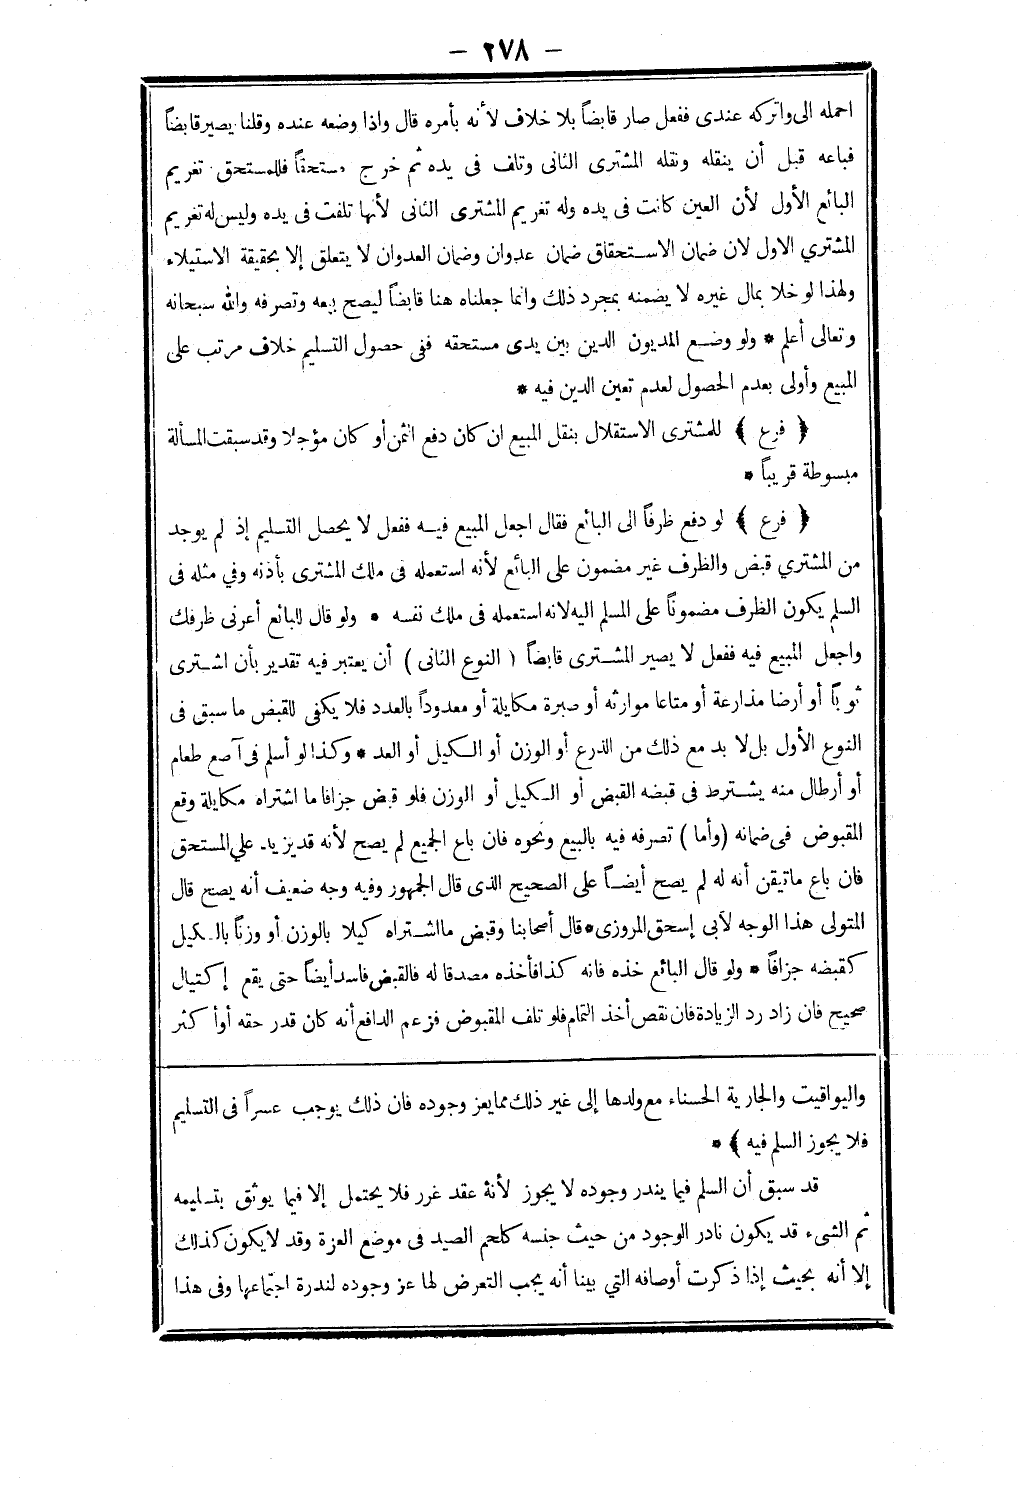 — ٢٧٨ —
احمله الى واتركه عندى ففعل صار قابضاً بلا خلاف لأنه بأمره قال واذا وضعه عنده وقلنا يصير قابضاً
فباعه قبل أن ينقله ونقله المشترى الثانى وتلف فى يده ثم خرج مستحقاً فللمستحق تغريم
البائع الأول لأن العين كانت فى يده وله تغريم المشترى الثانى لأنها تلفت فى يده وليس له تغريم
المشتري الاول لان ضمان الاستحقاق ضمان عدوان وضمان العدوان لا يتعلق إلا بحقيقة الاستيلاء
ولهذا لو خلا بمال غيره لا يضمنه بمجرد ذلك وانما جعلناه هنا قابضاً ليصح بيعه وتصرفه والله سبحانه
وتعالى أعلم * ولو وضع المديون الدين بين يدى مستحقه ففى حصول التسليم خلاف مرتب على
المبيع وأولى بعدم الحصول لعدم تعين الدين فيه *
﴿ فرع ﴾ للمشترى الاستقلال بنقل المبيع ان كان دفع الثمن أو كان مؤجلا وقد سبقت المسألة
مبسوطة قريباً *
﴿ فرع ﴾ لو دفع ظرفاً الى البائع فقال اجعل المبيع فيه ففعل لا يحصل التسليم إذ لم يوجد
من المشتري قبض والظرف غير مضمون على البائع لأنه استعمله فى ملك المشترى بأذنه وفي مثله فى
السلم يكون الظرف مضموناً على المسلم اليه لانه استعمله فى ملك نفسه * ولو قال للبائع أعرنى ظرفك
واجعل المبيع فيه ففعل لا يصير المشترى قابضاً ( النوع الثانى ) أن يعتبر فيه تقدير بأن اشترى
ثوباً أو أرضا مذارعة أو متاعا موازنه أو صبرة مكايلة أو معدوداً بالعدد فلا يكفى للقبض ما سبق فى
النوع الأول بل لا بد مع ذلك من الذرع أو الوزن أو الكيل أو العد * وكذا لو أسلم فى آصع طعام
أو أرطال منه يشترط فى قبضه القبض أو الكيل أو الوزن فلو قبض جزافا ما اشتراه مكايلة وقع
المقبوض فى ضمانه (وأما ) تصرفه فيه بالبيع ونحوه فان باع الجميع لم يصح لأنه قد يزيد علي المستحق
فان باع ماتيقن أنه له لم يصح أيضاً على الصحيح الذى قال الجمهور وفيه وجه ضعيف أنه يصح قال
المتولى هذا الوجه لأبى إسحق المروزى * قال أصحابنا وقبض ما اشتراه كيلا بالوزن أو وزناً بالكيل
كقبضه جزافاً * ولو قال البائع خذه فانه كذا فأخذه مصدقا له فالقبض فاسد أيضاً حتى يقع إكتيال
صحيح فان زاد رد الزيادة فان نقص أخذ التمام فلو تلف المقبوض فزعم الدافع أنه كان قدر حقه أوأكثر
واليواقيت والجارية الحسناء مع ولدها إلى غير ذلك مما يعز وجوده فان ذلك يوجب عسراً فى التسليم
فلا يجوز السلم فيه ﴾ *
قد سبق أن السلم فيما يندر وجوده لا يجوز لأنة عقد غرر فلا يحتمل إلا فيما يوثق بتسليمه
ثم الشىء قد يكون نادر الوجود من حيث جنسه كلحم الصيد فى موضع العزة وقد لا يكون كذلك
إلا أنه بحيث إذا ذكرت أوصافه التي بينا أنه يجب التعرض لها عز وجوده لندرة اجتماعها وفى هذا